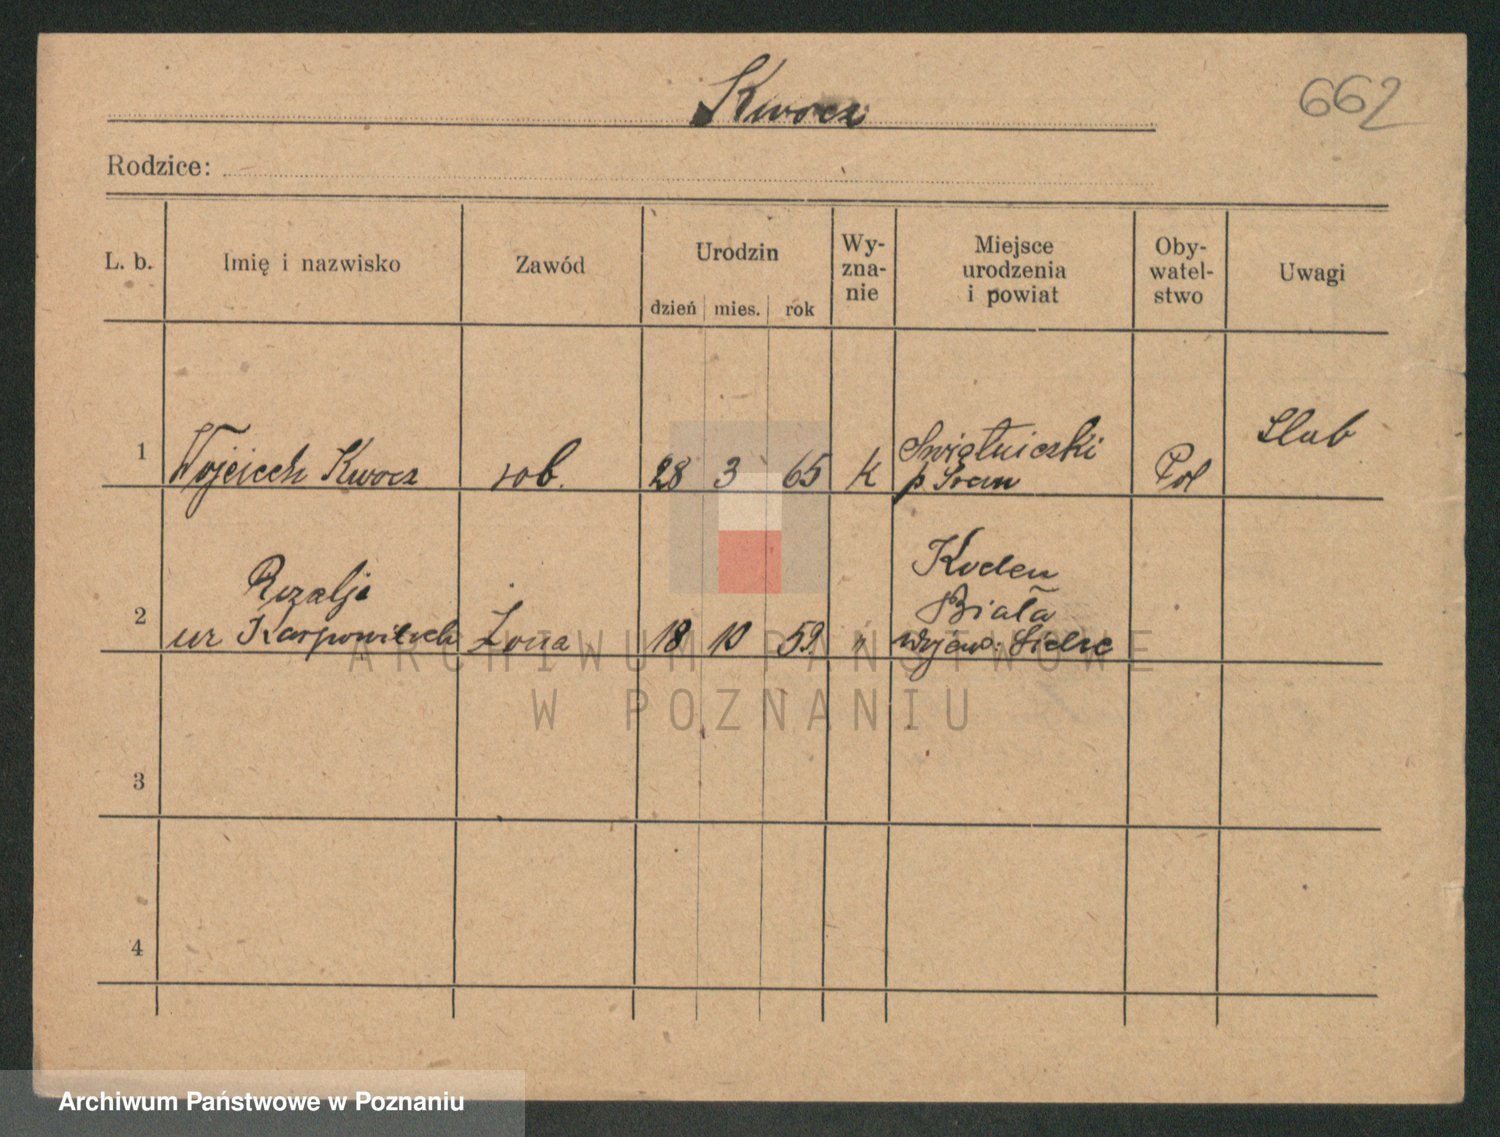 Kwocz
662
Rodzice:
L. b.
Imię i nazwisko
Zawód
Urodzin
dzień mies. rok
Wy-
zna-
nie
Miejsce
urodzenia
i powiat
Oby-
watel-
stwo
Uwagi
1 Wojciech Kwocz rob. 28 3 65 K
Swiątniczki
p. Srem
Pol
Slub
2
Rozalja
ur Karpowitsch
Żona 18 10 59. "
Koden
Biała
Wojew:
3
4
ARCHIWUM PAŃSTWOWE
W POZNANIU
Archiwum Państwowe w Poznaniu